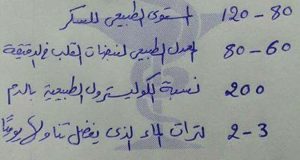 80-120 المستوى الطبيعي للسكر
60-80 المعدل الطبيعي لنبضات القلب في الدقيقة
200 نسبة الكوليسترول الطبيعية بالدم
2-3 لترات الماء الذي يفضل تناولها يومياً